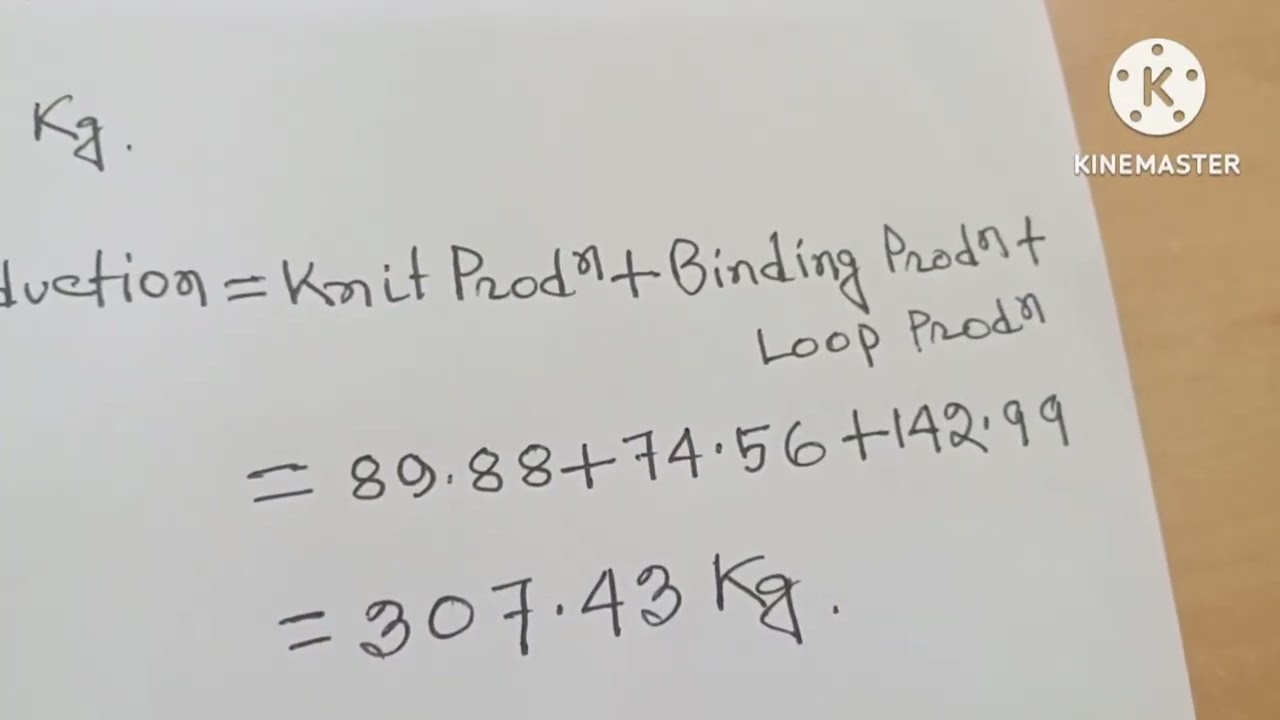 Kg.
duction = Knit Prodⁿ + Binding Prodⁿ +
Loop Prodⁿ
= 89.88 + 74.56 + 142.99
= 307.43 Kg.
K
KINEMASTER